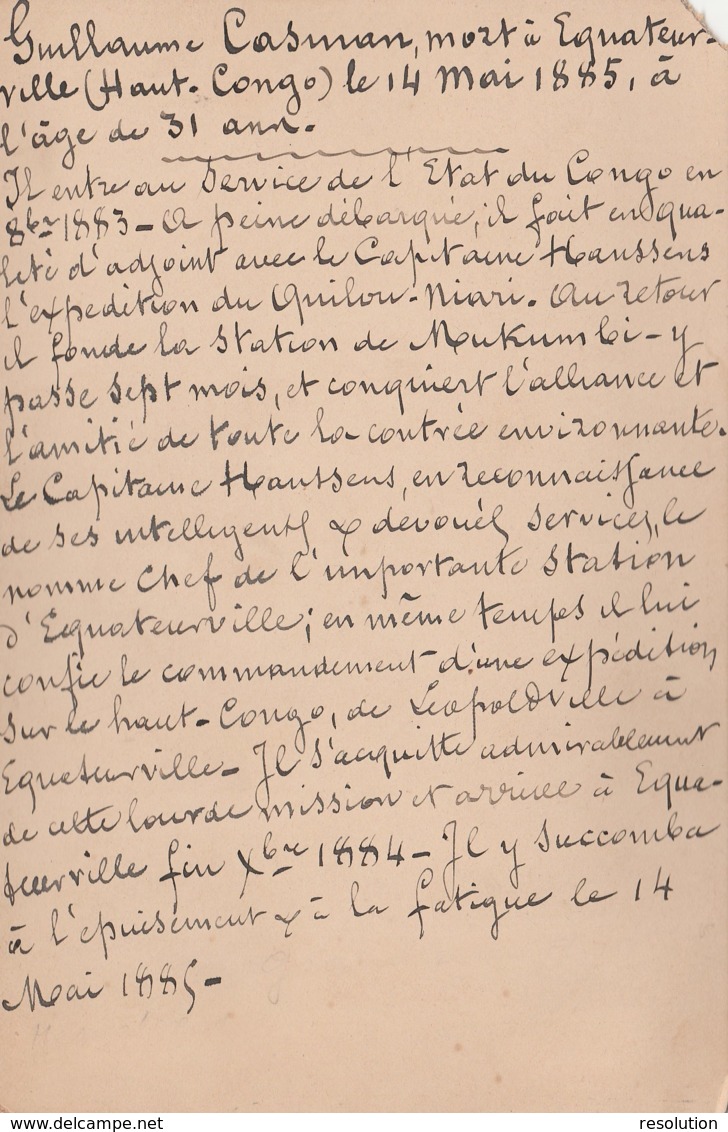 Guillaume Casman, mort à Equateur-
ville (Haut-Congo) le 14 Mai 1885, à
l'âge de 31 ans.
Il entre au Service de l'Etat du Congo en
8bre 1883 - A peine débarqué, il fait en qua-
lité d'adjoint avec le Capitaine Hanssens
l'expedition du Quilou-Niari. Au retour
il fonde la Station de Mukumbi - y
passe sept mois, et conquiert l'alliance et
l'amitié de toute la contrée environnante.
Le Capitaine Hanssens, en reconnaissance
de ses intelligents & dévoués services, le
nomme Chef de l'importante Station
d'Equateurville; en même temps il lui
confie le commandement d'une expédition
sur le haut-Congo, de Léopoldville à
Equateurville - Il s'acquitte admirablement
de cette lourde mission et arrive à Equa-
teurville fin Xbre 1884 - Il y succomba
à l'épuisement & à la fatigue le 14
Mai 1885 -
www.delcampe.net
resolution